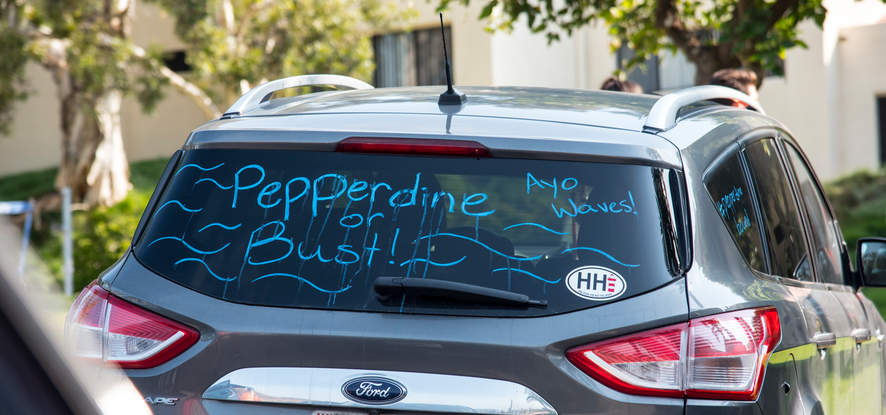 Pepperdine
or
Bust!
Ayo
Waves!
HH
Ford